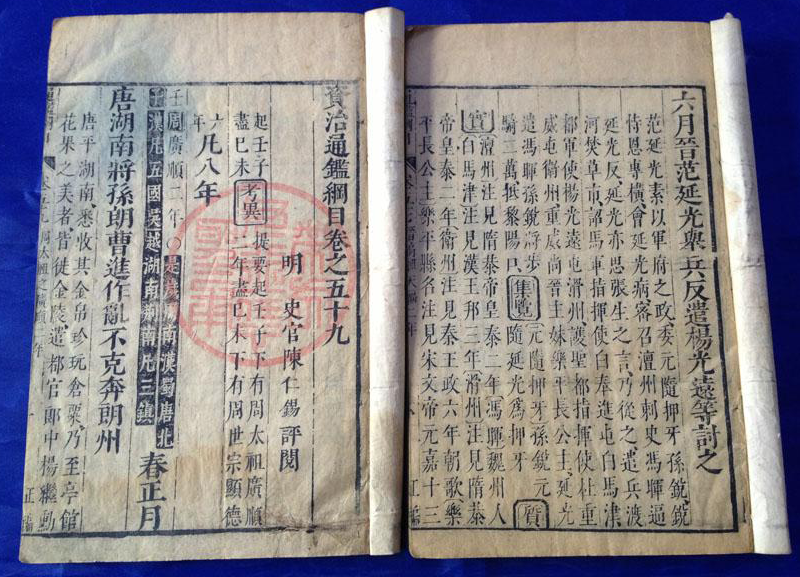 六月晉范延光舉兵反遣楊光遠等討之
范延光素以軍府之政委元隨押牙孫銳銳
恃恩專橫會延光病密召澶州刺史馮暉逼
延光反延光亦思張生之言乃從之遣兵渡
河焚草市詔馬軍指揮使白奉進屯白馬津
都軍使楊光遠屯滑州護聖都指揮使杜重
威屯衞州重威尚晉主妹樂平長公主延光
遣馮暉孫銳將步
騎二萬抵黎陽口
集覽
元隨押牙孫銳元
隨延光為押牙
質
實
澶州注見隋恭帝皇泰二年馮暉魏州人
白馬津注見漢王邦三年滑州注見隋恭
帝皇泰二年衛州注見秦王政六年朝歌樂
平長公主樂平縣名注見宋文帝元嘉十三
資治通鑑綱目卷之五十九
明 史官陳仁錫評閱
起壬子
盡己未
考異
提要起壬子下有周太祖廣順
二年盡己未下有周世宗顯德
六年
凡八年
壬子
周廣順二年〇是歲周南漢蜀唐北
漢凡五國吳越湖南荊南凡三鎮
春正月
唐湖南將孫朗曹進作亂不克奔朗州
唐平湖南悉收其金帛珍玩倉粟乃至亭館
花果之美者皆徙金陵遣都官郎中楊繼勳